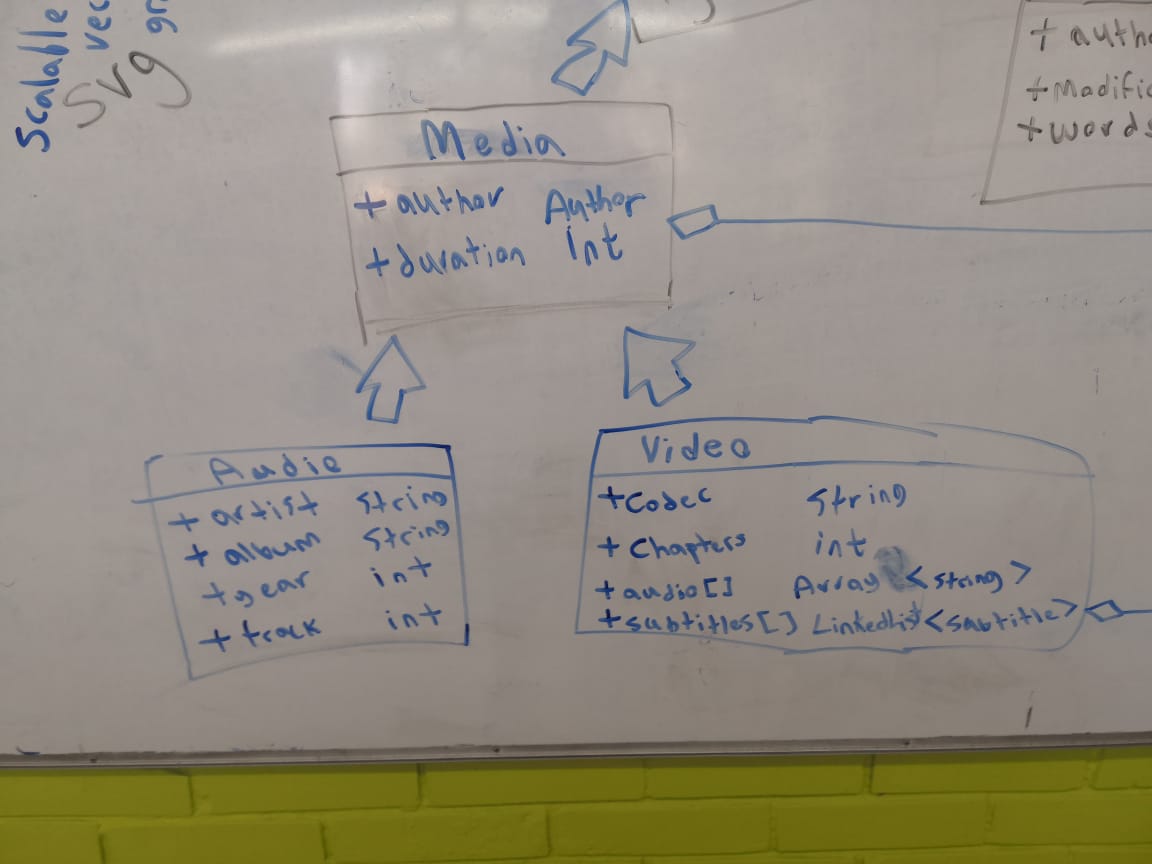 Scalable
vec
gr
Svg
+ autho
+ Modific
+ words
Media
+ author Author
+ duration int
Audio
+ artist String
+ album String
+ year int
+ track int
Video
+ Codec String
+ Chapters int
+ audio[] Array <string>
+ subtitles[] LinkedList <subtitle>